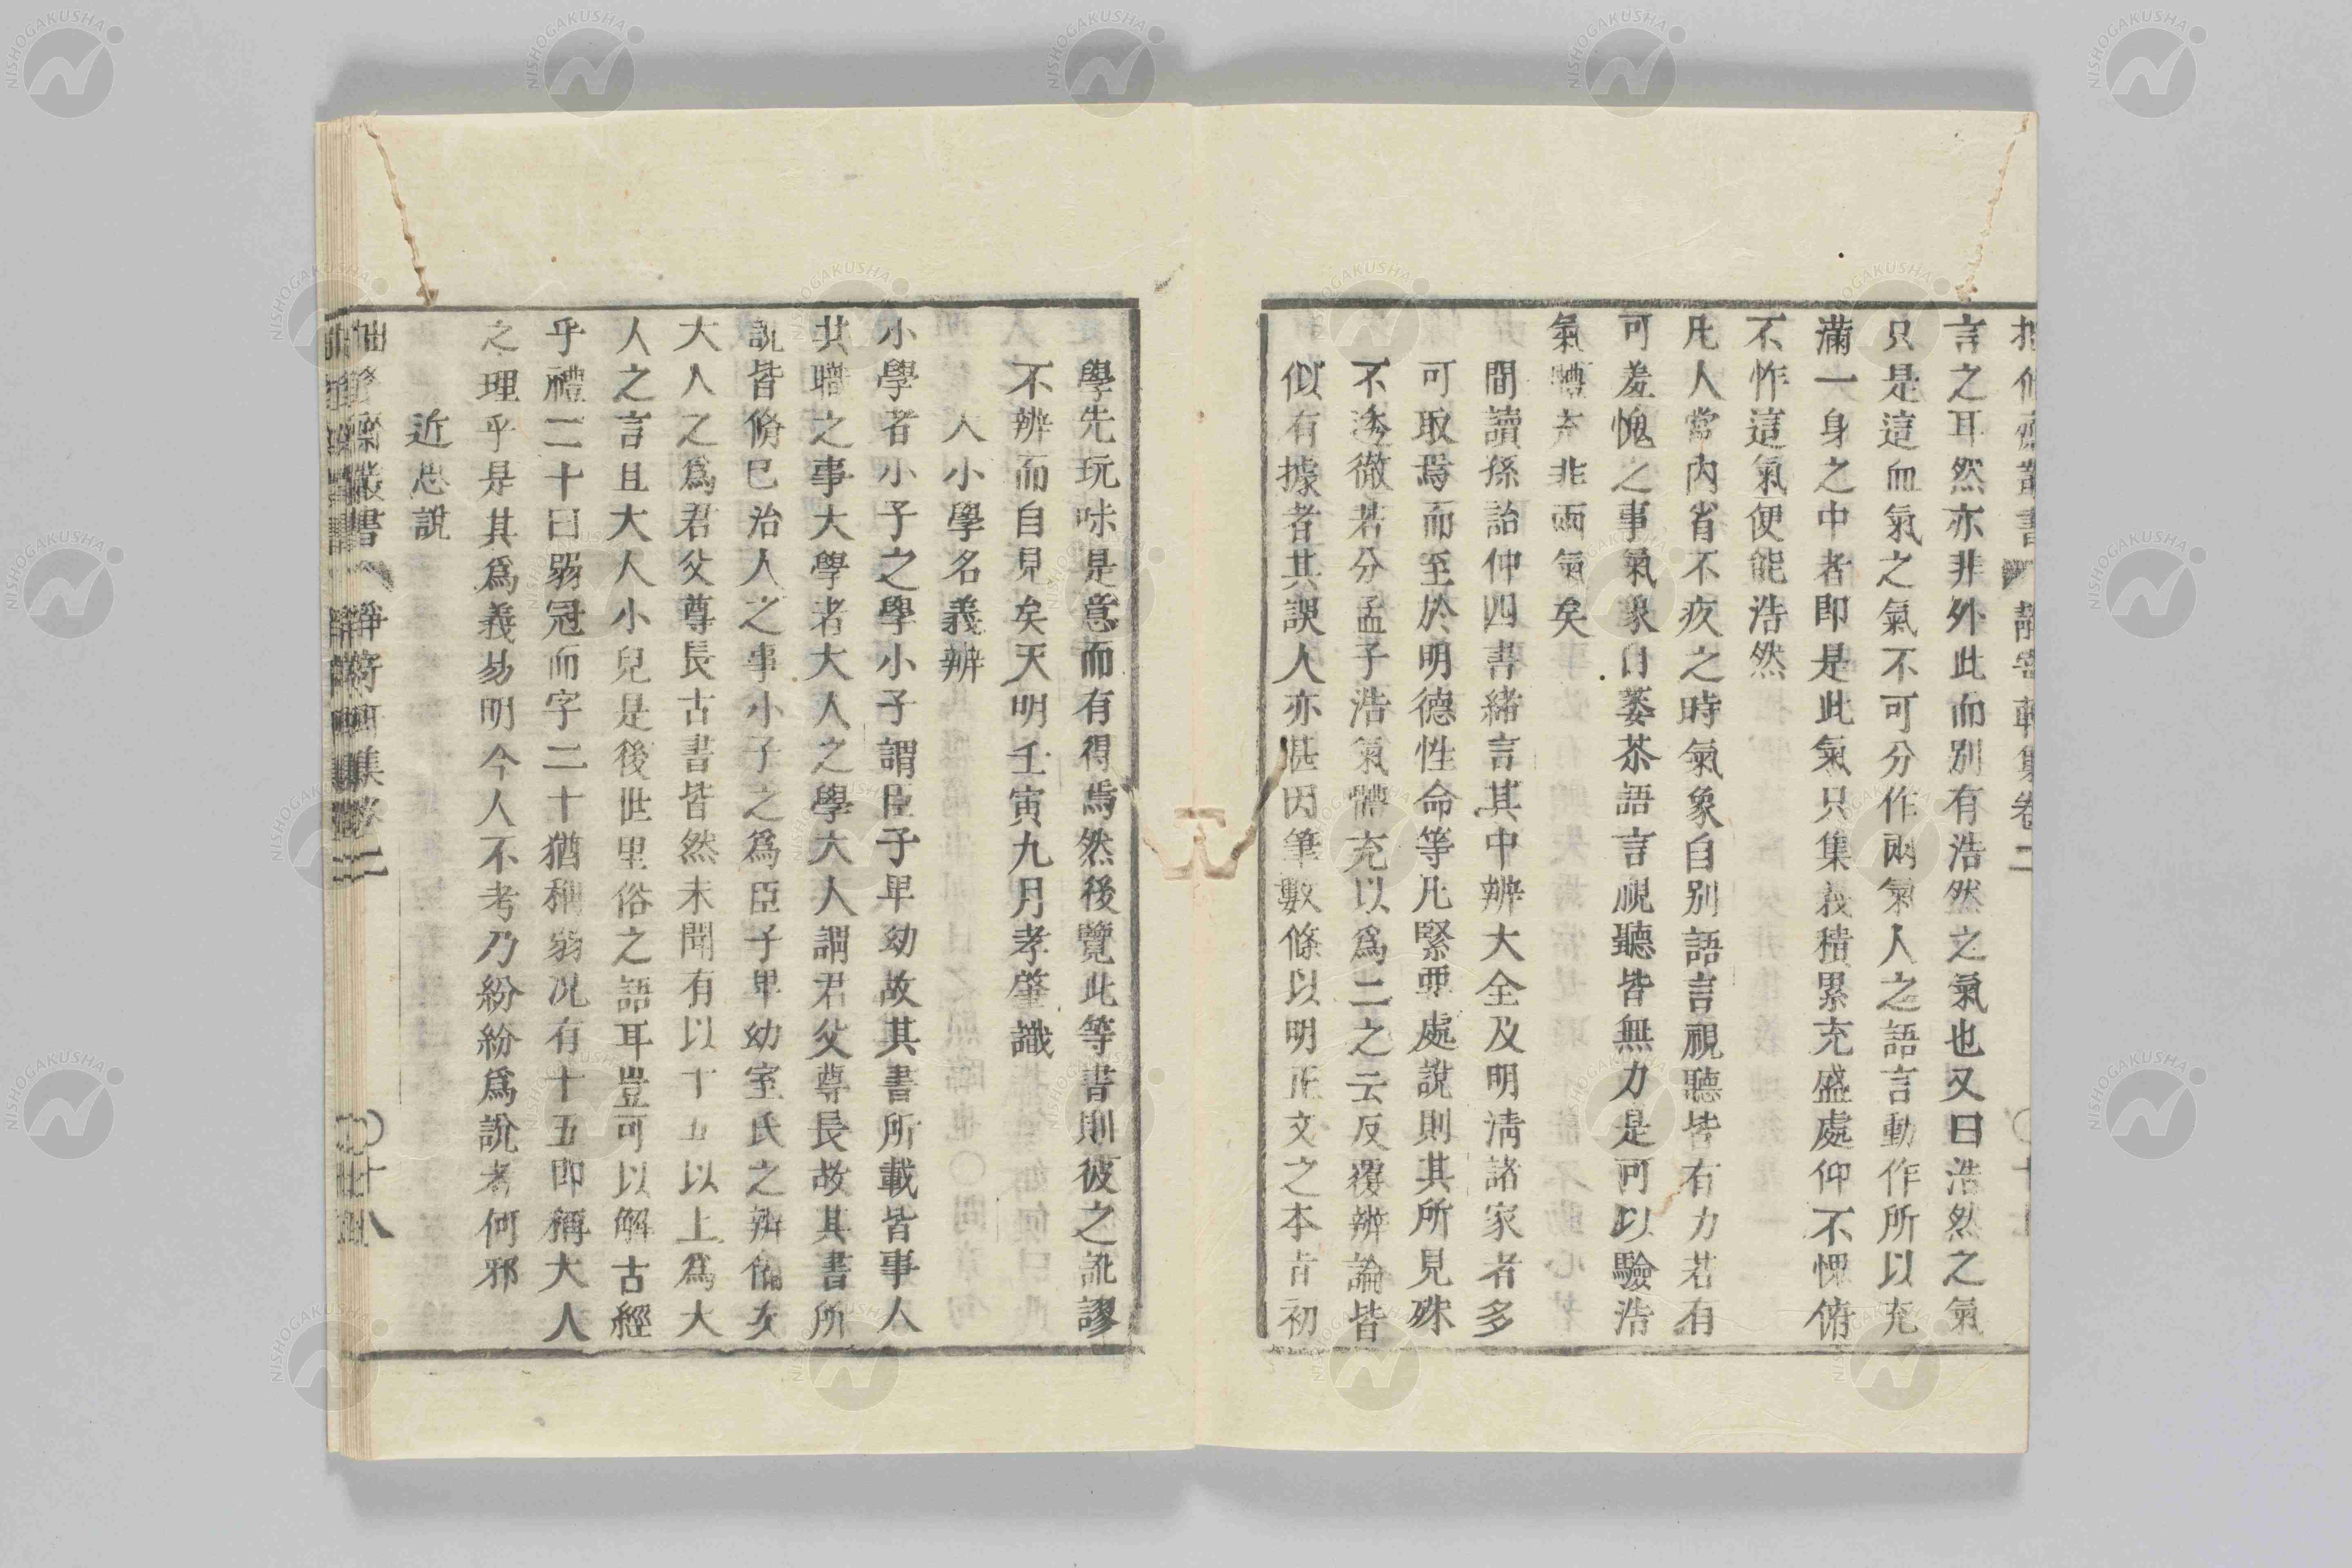 言之耳然亦非外此而別有浩然之氣也又曰浩然之氣
只是這血氣之氣不可分作兩氣人之語言動作所以充
滿一身之中者即是此氣只集義積累充盛處仰不愧俯
不怍這氣便能浩然
凡人當內省不疚之時氣象自別語言視聽皆有力若有
可羞愧之事氣象自萎苶語言視聽皆無力是可以驗浩
氣軆充非兩氣矣
間讀孫詒仲四書緒言其中辨大全及明清諸家者多
可取焉而至於明德性命等凡緊要處說則其所見殊
不透徹若分孟子浩氣軆充以爲二之云反覆辨論皆
似有據者其誤人亦甚因筆數條以明正文之本旨初
學先玩味是意而有得焉然後覽此等書則彼之訛謬
不辨而自見矣天明壬寅九月孝肇識
大小學名義辨
小學者小子之學小子謂臣子卑幼故其書所載皆事人
共職之事大學者大人之學大人謂君父尊長故其書所
說皆脩己治人之事小子之爲臣子卑幼室氏之辨備矣
大人之爲君父尊長古書皆然未聞有以十五以上爲大
人之言且大人小兒是後世里俗之語耳豈可以解古經
乎禮二十曰弱冠而字二十猶稱弱況有十五即稱大人
之理乎是其爲義易明今人不考乃紛紛爲說者何邪
近思說
十八
NISHOGAKUSHA